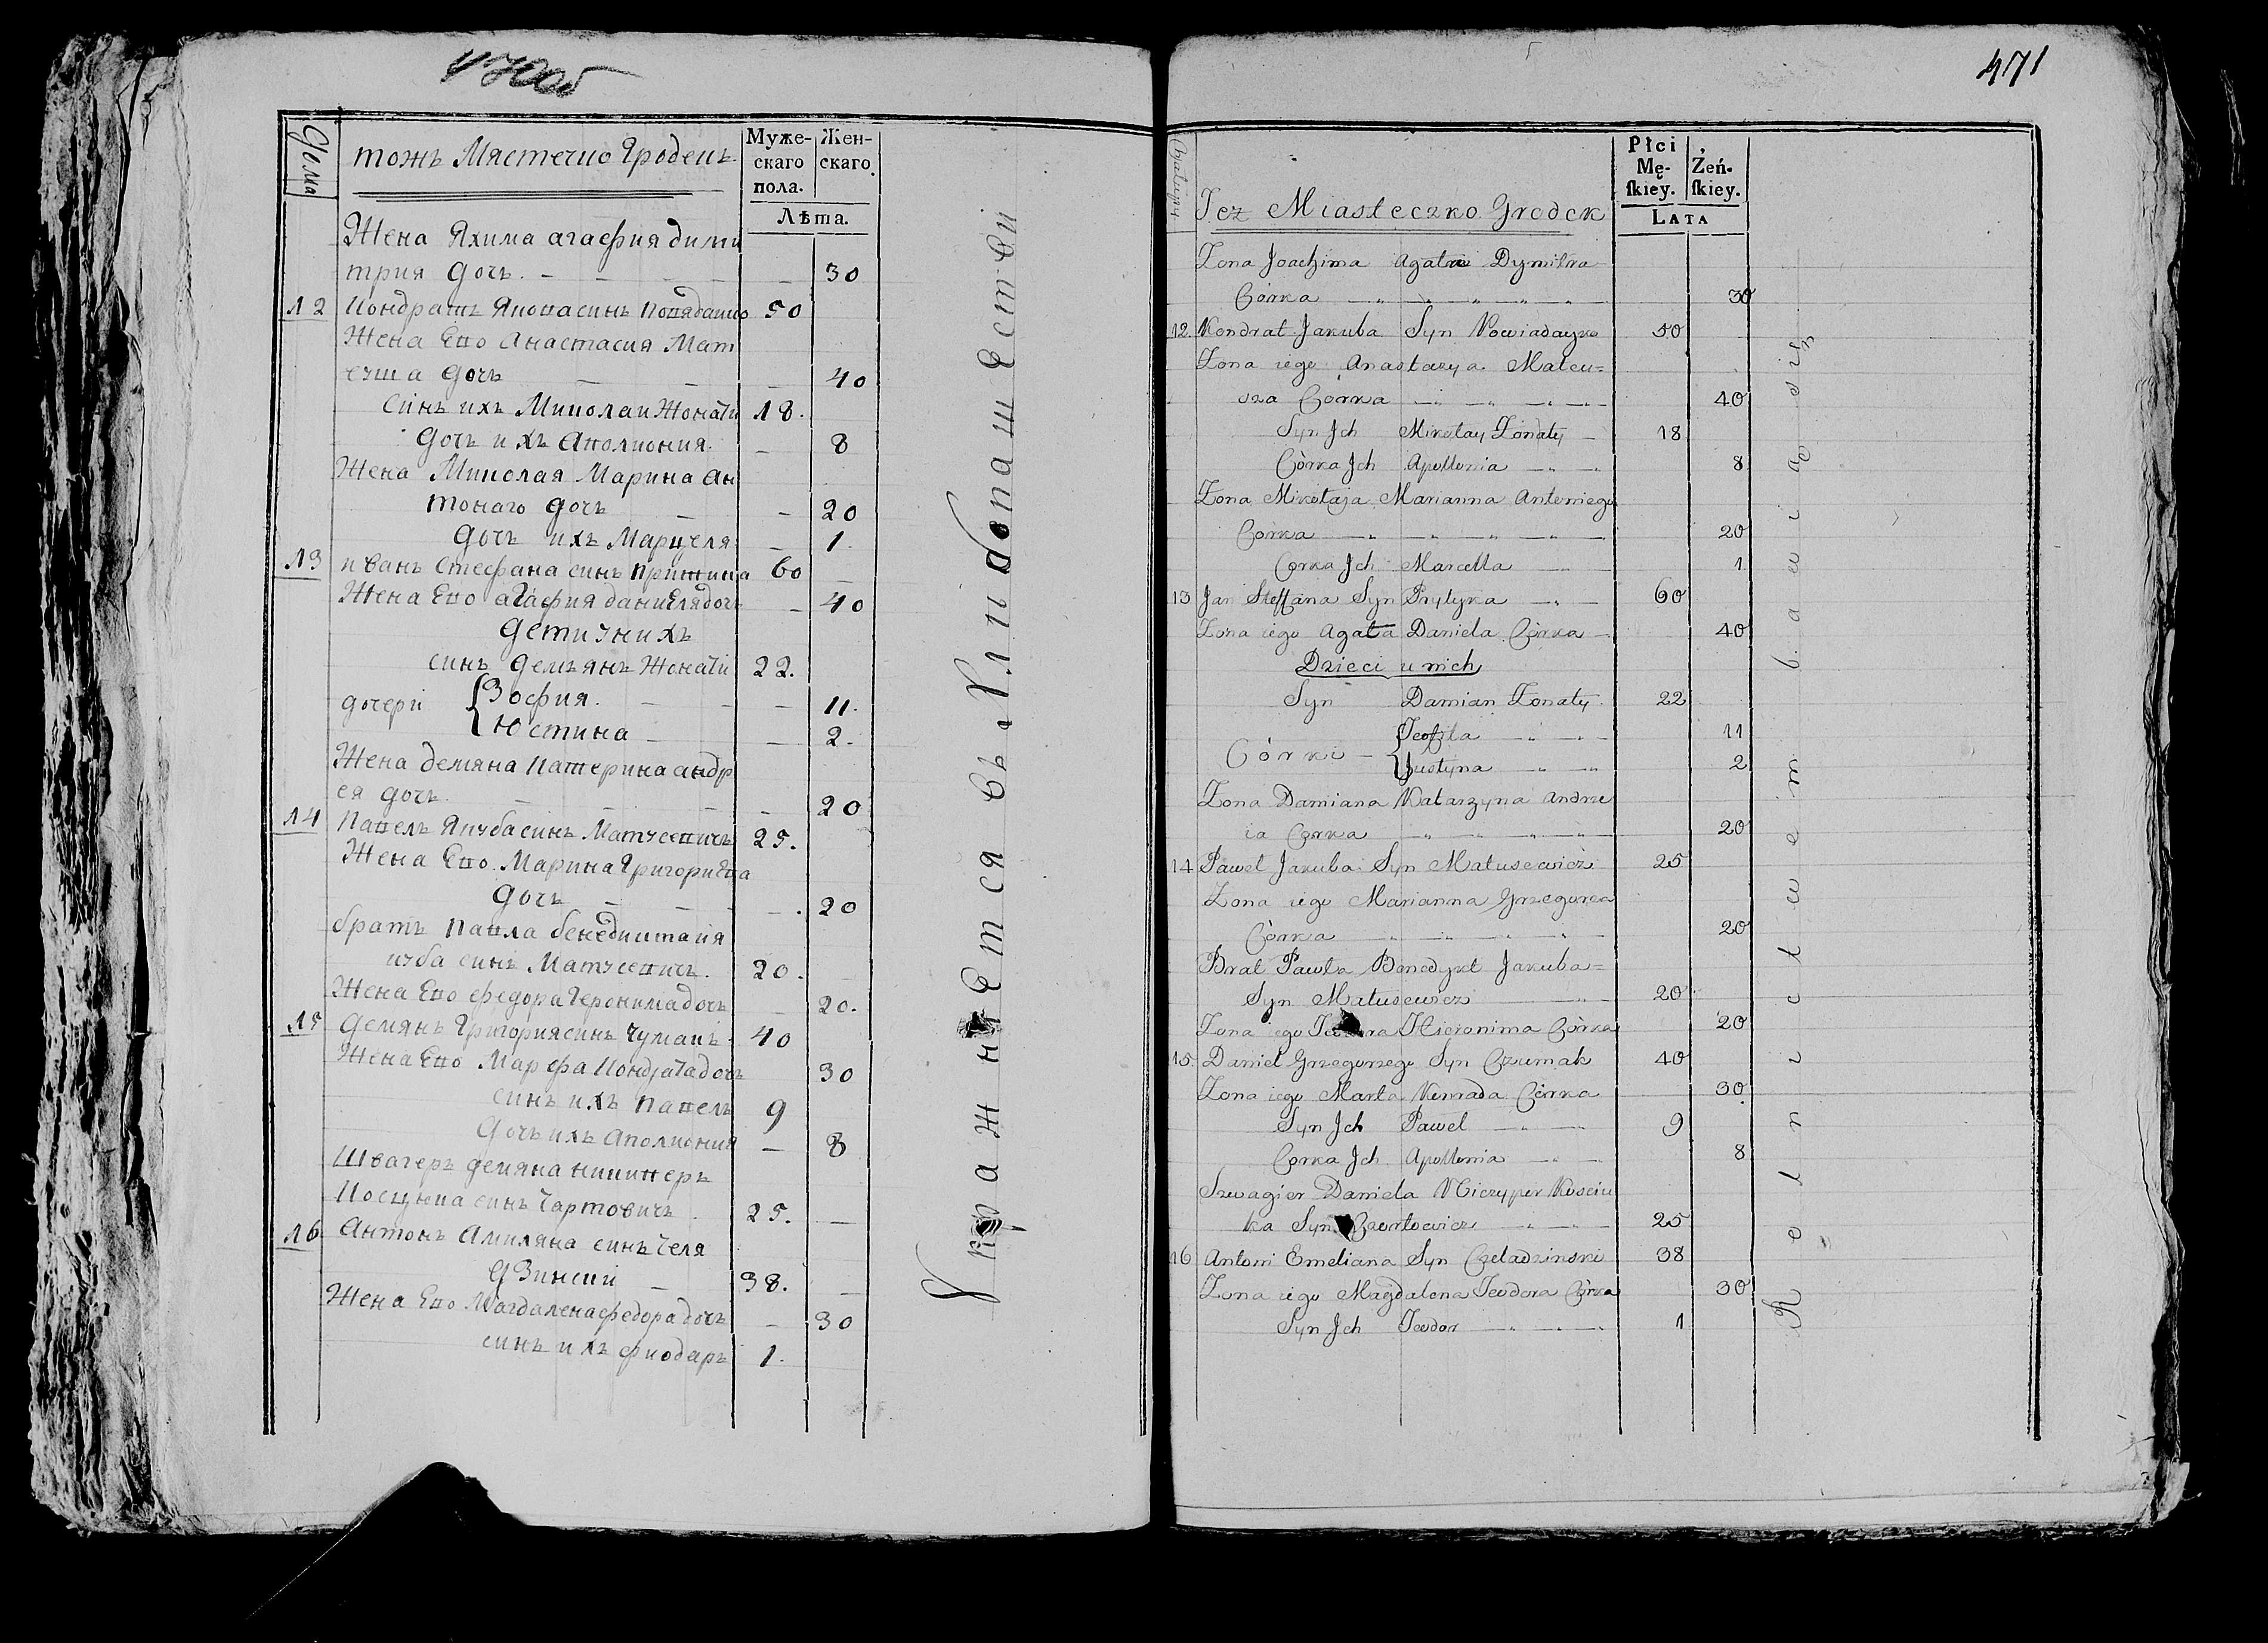 470об
Дома
тожъ Мястечко Гродекъ.
Муже-
скаго
пола.
Жен-
скаго.
Лѣта.
Жена Яхима агафия дими
трия дочъ. — — — — 30
12 Кондратъ Якова синъ Повядайко 50
Жена Его Анастасия Мат
еуша дочъ — — — 40
синъ ихъ Миколаи Жонати 18.
дочъ ихъ Аполиония. — 8
Жена Миколая Марина ан
тонаго дочъ — — 20
дочъ ихъ Марцеля — 1.
13 иванъ Стефана синъ притика 60 —
Жена Его агафия данieля дочъ — 40
дети у нихъ
синъ демъянъ Жонати 22.
дочери { Зофия. — — — 11.
Юстина — — 2.
Жена демяна Катерина андр
ея дочъ. — — — — 20
14 Павелъ Якуба синъ Матусевичъ 25.
Жена Его Марина Григориева
дочъ — — — —. 20
братъ павла бенедиктъ ия
куба синъ Матусевичъ. 20. —
Жена Его федора Геронима дочъ — 20.
15 демянъ Григория синъ Чумакъ. 40
Жена Его Марфа Кондрата дочъ 30
синъ ихъ павелъ 9
дочъ ихъ аполиония — 8
Швагеръ демяна никиперъ
Косцюка синъ Чартовичъ. 25. —
16 Антонъ Амиляна синъ Челя
дзинский — 38. —
Жена Его Магдалена федора дочъ — 30
синъ ихъ фиодаръ 1.
въ Клинботаш
471
Chałupy
Tez Miasteczko Grodek
Płci
Mę-
ſkiey.
Żeń-
ſkiey.
LATA
Zona Joachima Agata Dymitra
Córka — „ — „ — „ — „ — 30
12. Kondrat Jakuba Syn Powiadayko 50
Zona iego Anastazya Mateu=
sza Córka — „ — „ — „ — 40
Syn Jch Mikołay Zonaty — 18
Córka Jch Apollonia — „ — 8
Zona Mikołaja Marianna Antoniego
Corka — „ — „ — „ — 20
Corka Jch Marcella — 1
13 Jan Steffana Syn Prytyka — „ — 60
Zona iego Agata Daniela Córka — 40
Dzieci u nich
Syn Damian Zonaty. 22
Córki — { Teofila — „ — „ — 11
Justyna — „ — 2
Zona Damiana Katarzyna Andrze
ia Corka — „ — „ — „ — 20
14 Paweł Jakuba Syn Matusewicz 25
Zona iego Marianna Grzegorza
Córka — „ — „ — „ — 20
Brat Pawła Benedykt Jakuba=
Syn Matusewicz — „ — 20
Zona iego Teodora Hieronima Córka 20
15. Daniel Grzegorzego Syn Czumak 40
Zona iego Marta Konrada Córka 30
Syn Jch Paweł — „ — 9
Corka Jch Apollonia — „ — 8
Szwagier Daniela Niczyper Kosciu
ka Syn Czartowicz — „ — „ — 25
16 Antoni Emeliana Syn Czeladzinski 38
Zona iego Magdalena Teodora Córka 30
Syn Jch Teodor — „ — „ — 1